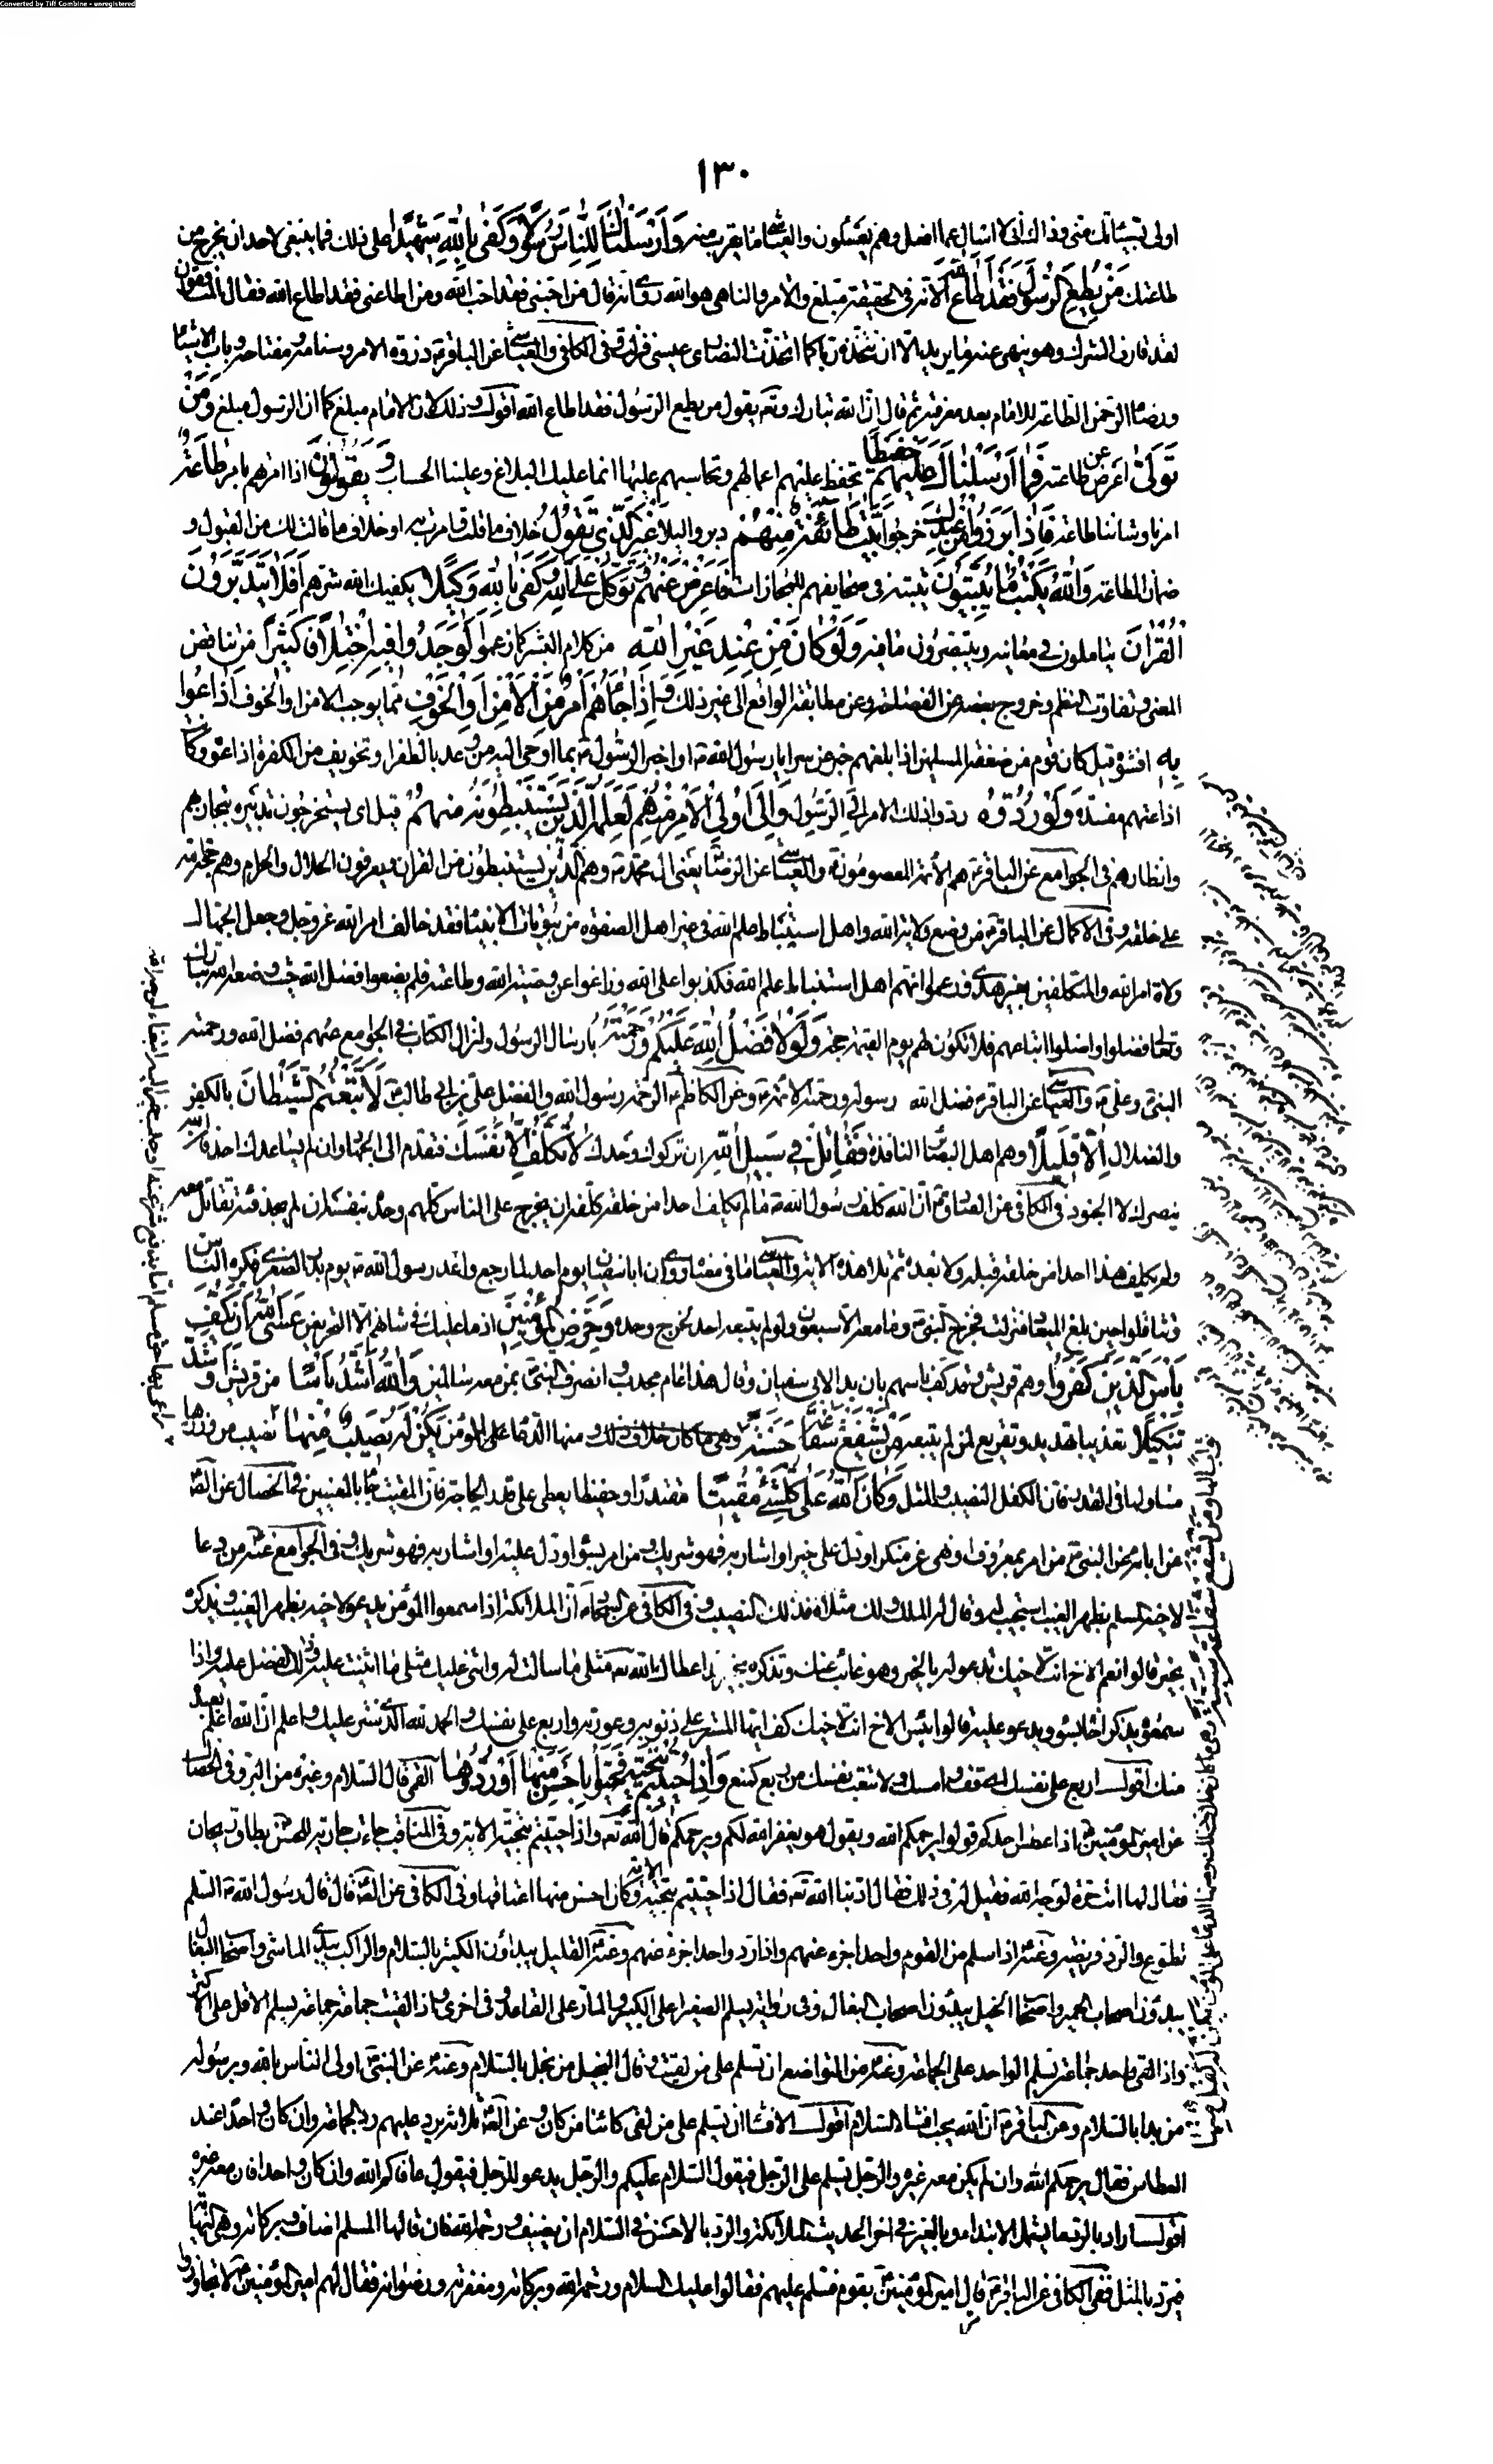 Converted by Tiff Combine - unregistered
١٣٠
اولى بسيئاتك منى وذاك انى لا اسئال عما افعل وهم يسئلون والعياشى ما يقرب منه وَأَرْسَلْنَاكَ لِلنَّاسِ رَسُولًا وَكَفَىٰ بِاللَّهِ شَهِيدًا على ذلك فما ينبغى لاحد ان يخرج من
طاعتك مَنْ يُطِعِ الرَّسُولَ فَقَدْ أَطَاعَ اللَّهَ لانه فى الحقيقة مبلغ والامر والناهى هو الله روى انه قال من احبنى فقد احب الله ومن اطاعنى فقد اطاع الله فقال المنافقون
لقد قارف الشرك وهو ينهى عنه ما يريد الا ان نتخذه ربا كما اتخذت النصارى عيسى فنزلت وفى الكافى والعياشى عن الباقر ع ذروة الامر وسنامه ومفتاحه وباب الاشياء
ورضا الرحمن الطاعة للامام بعد معرفته ثم قال ان الله تبارك وتع يقول من يطع الرسول فقد اطاع الله اقول وذلك لان الامام مبلغ كما ان الرسول مبلغ وَمَنْ
تَوَلَّىٰ اعرض عن طاعته فَمَا أَرْسَلْنَاكَ عَلَيْهِمْ حَفِيظًا تحفظ عليهم اعمالهم وتحاسبهم عليها انما عليك البلاغ وعلينا الحساب وَيَقُولُونَ اذا امرتهم بامر طَاعَةٌ
امرنا وشاننا طاعة فَإِذَا بَرَزُوا مِنْ عِنْدِكَ خرجوا بَيَّتَ طَائِفَةٌ مِنْهُمْ دبروا ليلا غَيْرَ الَّذِي تَقُولُ خلاف ما قلت وامرت به او خلاف ما قالت لك من القبول و
ضمان الطاعة وَاللَّهُ يَكْتُبُ مَا يُبَيِّتُونَ يثبته فى صحايفهم للمجازات فَأَعْرِضْ عَنْهُمْ وَتَوَكَّلْ عَلَى اللَّهِ وَكَفَىٰ بِاللَّهِ وَكِيلًا يكفيك الله شرهم أَفَلَا يَتَدَبَّرُونَ
الْقُرْآنَ يتاملون فى معانيه ويتبصرون ما فيه وَلَوْ كَانَ مِنْ عِنْدِ غَيْرِ اللَّهِ من كلام البشر كما زعموا لَوَجَدُوا فِيهِ اخْتِلَافًا كَثِيرًا من تناقض
المعنى وتفاوت النظم وخروج بعضه عن الفصاحة وعن مطابقة الواقع الى غير ذلك وَإِذَا جَاءَهُمْ أَمْرٌ مِنَ الْأَمْنِ أَوِ الْخَوْفِ مما يوجب الامن او الخوف أَذَاعُوا
بِهِ افشوه قيل كان قوم من ضعفة المسلمين اذا بلغهم خبر عن سرايا رسول الله ص او اخبر الرسول ص بما اوحى اليه من وعد بالظفر او تخويف من الكفرة اذاعوه وكانت
اذاعتهم مفسدة وَلَوْ رَدُّوهُ ردوا ذلك الامر إِلَى الرَّسُولِ وَإِلَىٰ أُولِي الْأَمْرِ مِنْهُمْ لَعَلِمَهُ الَّذِينَ يَسْتَنْبِطُونَهُ مِنْهُمْ قيل اى يستخرجون تدبيره بتجاربهم
وانظارهم فى الجوامع عن الباقر ع هم الائمة المعصومون ع والعياشى عن الرضا ع يعنى ال محمد ص وهم الذين يستنبطون من القران ويعرفون الحلال والحرام وهم حجة الله
على خلقه وفى الاكمال عن الباقر ع من وضع ولاية الله واهل استنباط علم الله فى غير اهل الصفوة من بيوتات الانبياء فقد خالف امر الله عز وجل وجعل الجهال
ولاة امر الله والمتكلفين بغير هدى وزعموا انهم اهل استنباط علم الله فكذبوا على الله وزاغوا عن وصية الله وطاعته فلم يضعوا فضل الله حيث وضعه الله تبارك
وتعالى فضلوا واضلوا اتباعهم فلا تكون لهم يوم القيمة حجة وَلَوْلَا فَضْلُ اللَّهِ عَلَيْكُمْ وَرَحْمَتُهُ بارسال الرسول وانزال الكتاب فى الجوامع عنهم فضل الله ورحمته
النبى وعلى ع والعياشى عن الباقر ع فضل الله رسوله ورحمته الائمة ع وعن الكاظم ع الرحمة رسول الله والفضل على بن ابى طالب ع لَاتَّبَعْتُمُ الشَّيْطَانَ بالكفر
والضلال إِلَّا قَلِيلًا وهم اهل البصائر النافذة فَقَاتِلْ فِي سَبِيلِ اللَّهِ ان تركوك وحدك لَا تُكَلَّفُ إِلَّا نَفْسَكَ فتقدم الى الجهاد وان لم يساعدك احد فان الله
ينصرك لا الجنود فى الكافى عن الصادق ع ان الله كلف رسول الله ص ما لم يكلف احدا من خلقه كلفه ان يخرج على الناس كلهم وحده بنفسه ان لم يجد فئة تقاتل معه
ولم يكلف هذا احدا من خلقه قبله ولا بعده ثم تلا هذه الاية والعياشى ما فى معناه وروى ان ابا سفيان يوم احد لما رجع واعد رسول الله ص يوم بدر الصغرى فكره الناس
وتثاقلوا حين بلغ الميعاد فنزلت فخرج النبى ص وما معه الا سبعون ولو لم يتبعه احد لخرج وحده وَحَرِّضِ الْمُؤْمِنِينَ اذ ما عليك فى شانهم الا التحريض عَسَى اللَّهُ أَنْ يَكُفَّ
بَأْسَ الَّذِينَ كَفَرُوا وهم قريش وقد كف باسهم بان بدا لابى سفيان وقال هذا عام مجدب وانصرف النبى ص بمن معه سالمين وَاللَّهُ أَشَدُّ بَأْسًا من قريش وَأَشَدُّ
تَنْكِيلًا تعذيبا تهديد وتقريع لمن لم يتبعه مَنْ يَشْفَعْ شَفَاعَةً حَسَنَةً وهى ما كان خلاف ذلك ومنها الدعاء على المؤمن يَكُنْ لَهُ نَصِيبٌ مِنْهَا نصيب من وزرها
مساو لها فى القدر فان الكفل النصيب والمثل وَكَانَ اللَّهُ عَلَىٰ كُلِّ شَيْءٍ مُقِيتًا مقتدرا او حفيظا يعطى على قدر الحاجة فان المقيت جاء بالمعنيين فى الخصال عن الصادق
عن ابائه عن النبى ص من امر بمعروف او نهى عن منكر او دل على خير او اشار به فهو شريك ومن امر بسوء او دل عليه او اشار به فهو شريك وفى الجوامع عنه ع من دعا
لاخيه المسلم بظهر الغيب استجيب له وقال له الملك ولك مثلاه فذلك النصيب وفى الكافى عن السجاد ع ان الملائكة اذا سمعوا المؤمن يدعو لاخيه بظهر الغيب ويذكره
بخير قالوا نعم الاخ انت لاخيك تدعو له بالخير وهو غائب عنك وتذكره بخير قد اعطاك الله تع مثلى ما سالت له واثنى عليك مثلى ما اثنيت عليه ولك الفضل عليه واذا
سمعوه يذكر اخاه بسوء ويدعو عليه قالوا بئس الاخ انت لاخيك كف ايها المستر على ذنوبه وعورته واربع على نفسك واحمد لله الذى ستر عليك واعلم ان الله اعلم بعبده
منك اقول اربع على نفسك اى قف وامسك ولا تتعب نفسك من ربع كمنع وَإِذَا حُيِّيتُمْ بِتَحِيَّةٍ فَحَيُّوا بِأَحْسَنَ مِنْهَا أَوْ رُدُّوهَا القمى قال السلام وغيره من البر وفى الخصال
عن امير المؤمنين ع اذا عطس احدكم قولوا يرحمكم الله ويقول هو يغفر الله لكم ويرحمكم قال الله تع واذا حييتم بتحية الاية وفى المناقب جاءت جارية للحسن ع بطاق ريحان
فقال لها انت حرة لوجه الله فقيل له فى ذلك فقال ادبنا الله تع فقال اذا حييتم بتحية الاية وكان احسن منها اعتاقها وفى الكافى عن الصادق ع قال قال رسول الله ص السلم
تطوع والرد فريضة وعنه ع اذا سلم من القوم واحد اجزء عنهم واذا رد واحد اجزء عنهم وعنه ع القليل يبداون الكثير بالسلام والراكب يبدء الماشى واصحاب البغال
يبدؤن اصحاب الحمير واصحاب الخيل يبدؤن اصحاب البغال وفى رواية يسلم الصغير على الكبير والمار على القاعد وفى اخرى واذا لقيت جماعة جماعة يسلم الاقل على الاكثر
واذا لقى واحد جماعة يسلم الواحد على الجماعة وعنه ع من التواضع ان تسلم على من لقيت وقال البخيل من بخل بالسلام وعنه ع عن النبى ص اولى الناس بالله وبرسوله
من بدا بالسلام وعن الباقر ع ان الله يحب افشاء السلام اقول الافشاء ان يسلم على من لقى كائنا من كان وعن الصادق ع ثلاثة يرد عليهم رد الجماعة وان كان واحدا عند
العطاس فقال يرحمكم الله وان لم يكن معه غيره والرجل يسلم على الرجل فيقول السلام عليكم والرجل يدعو للرجل فيقول عافاكم الله وان كان واحدا فان معه غيره
اقول اراد بالرد ما يشمل الابتداء وبالغير فى اخر الحديث الملائكة والرد بالاحسن فى السلام ان يضيف ورحمة الله فان قالها المسلم اضاف وبركاته وهى النهاية
فيرد بالمثل ففى الكافى عن الباقر ع قال مر امير المؤمنين ع بقوم فسلم عليهم فقالوا عليك السلام ورحمة الله وبركاته ومغفرته ورضوانه فقال لهم امير المؤمنين ع لا تجاوزوا
راعى بها حق مسلم اما بدفع شر عنه او جلب خير اليه ابتغاء لوجه الله